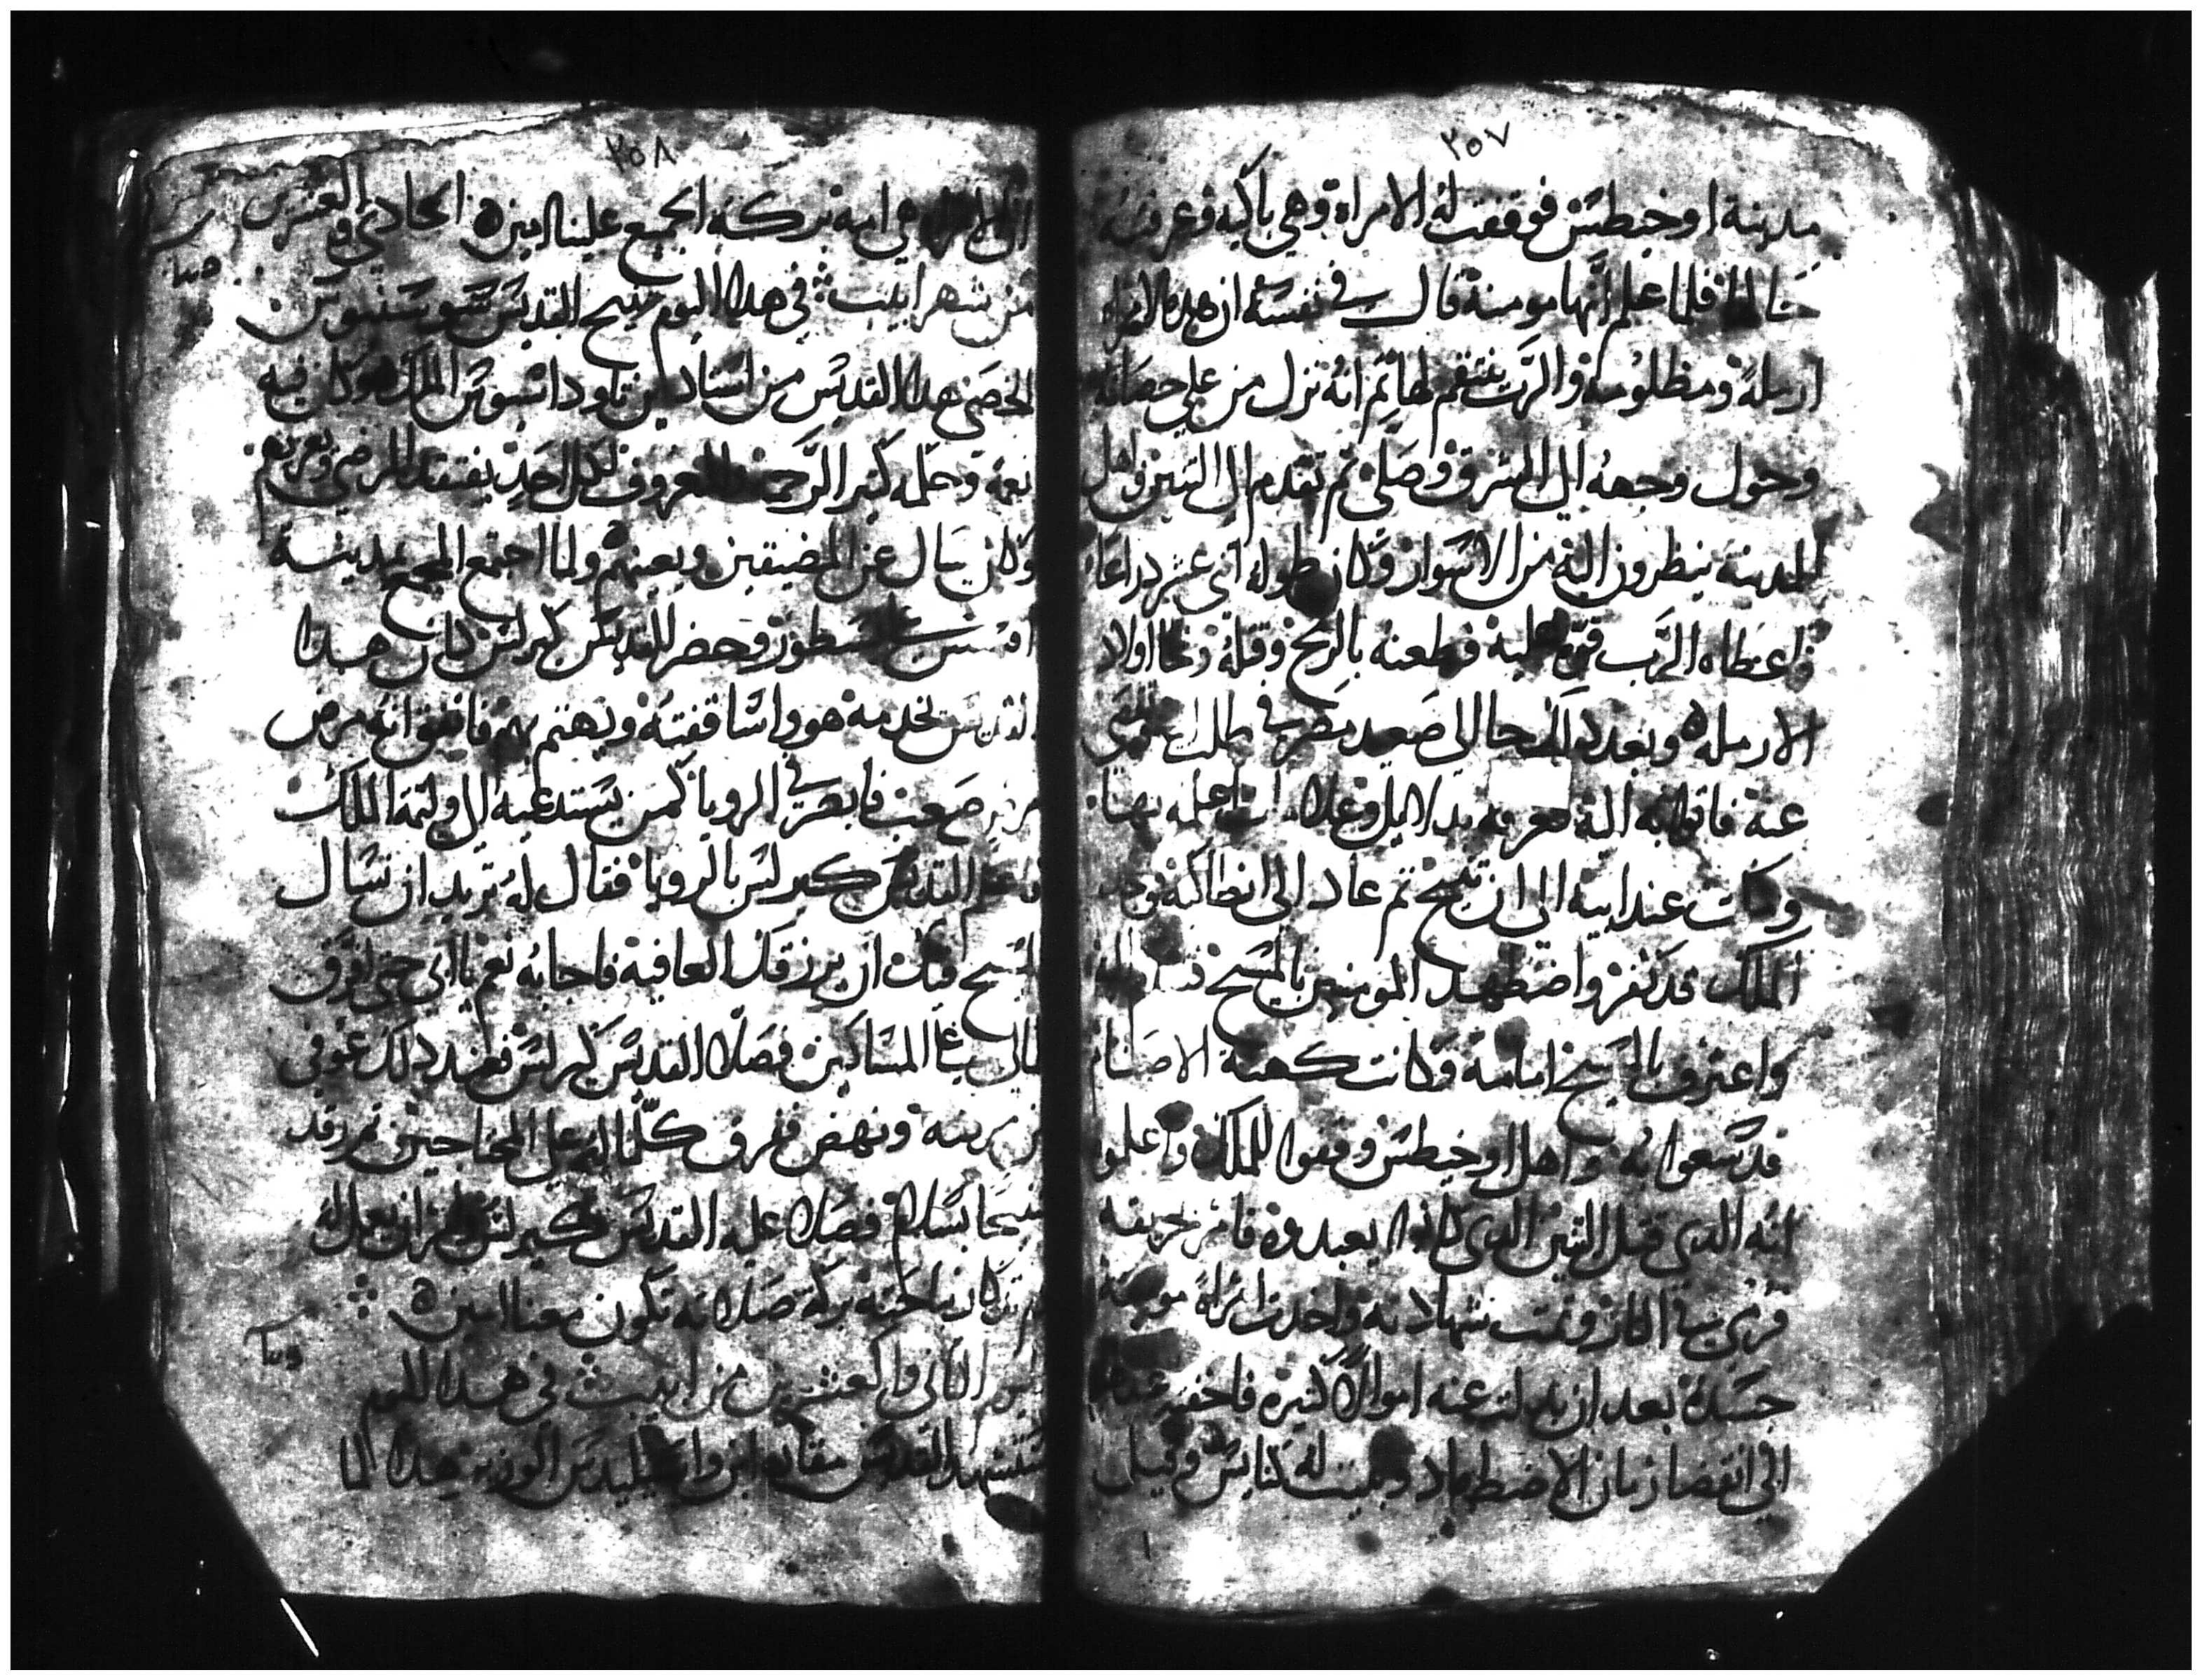 ٢٥٧
مدينة اوخيطس فوقفت له الامراة وهي باكيه وعرفته
حالها فلما علم انها مومنة قال في نفسه ان هذه الامراه
ارملة ومظلومة والرب ينتقم لها ثم انه نزل من على حصانه
وحول وجهه الى الشرق وصلى ثم تقدم الى التنين واهل
المدينة ينظرون اليه من الاسوار وكان طوله اثنى عشر دراعا
واعطاه الرب قوة عليه فطعنه بالرمح وقتله ونجا اولاد
الارمله وبعد ذلك جا الى صعيد مصر في طلب
عنه فاقام
وكت عند ابيه الى ان تنيح ثم عاد الى انطاكية فوجد
الملك قد كفر واضطهد المومنين بالمسيح
واعترف بالمسيح امامه وكانت كهنة الاصنام
قد سعوا به واهل اوخيطس وقفوا للملك واعلموه
انه الدي قتل التنين الدي كانوا يعبدوه فامر بحريقه
فرمي في النار وتمت شهادته واخدت امراة مومنة
جسده بعد ان بدلت عنه اموالا كتيرة فاخفته عندها
الى انقضا زمان الاضطهاد وبنيت له كنايس وقيل
٢٥٨
ان الامراه هي امه بركة الجميع علينا امين الحادي والعشرين
من شهر ابيب في هدا اليوم تنيح القديس سوسنيوس
الخصي هدا القديس من استادين تاوداسيوس الملك وكان فيه
نعمة وحمله كتير الرحمة والمعروف لكل احد يفتقد المرضى ويعزيهم
وكان يسال عن المضيقين ويعينهم ولما اجتمع المجمع بمدينة
افسس على نسطور وحضر القديس كيرلس كان هدا
القديس يخدمه هو واساقفته ويهتم بهم فاتفق انه مرض
مرض صعب فابصر في الرويا كمن يستدعيه الى وليمة الملك
فاعلم القديس كيرلس بالرويا فقال له تريد ان نسال
المسيح فيك ان يرزقك العافيه فاجابه نعم يا ابي حتى افرق
مالي على المساكين فصلا القديس كيرلس فعند دلك عوفي
من مرضه ونهض ففرق كلما له على المحتاجين ثم رقد
متنيحا بسلام فصلا عليه القديس كيرلس وامر ان يعمل له
تدكار بياحته بركة صلاته تكون معنا امين
اليوم التاني والعشرين من ابيب في هدا اليوم
استشهد القديس مقاره ابن واسيليدس الوزير هدا لما